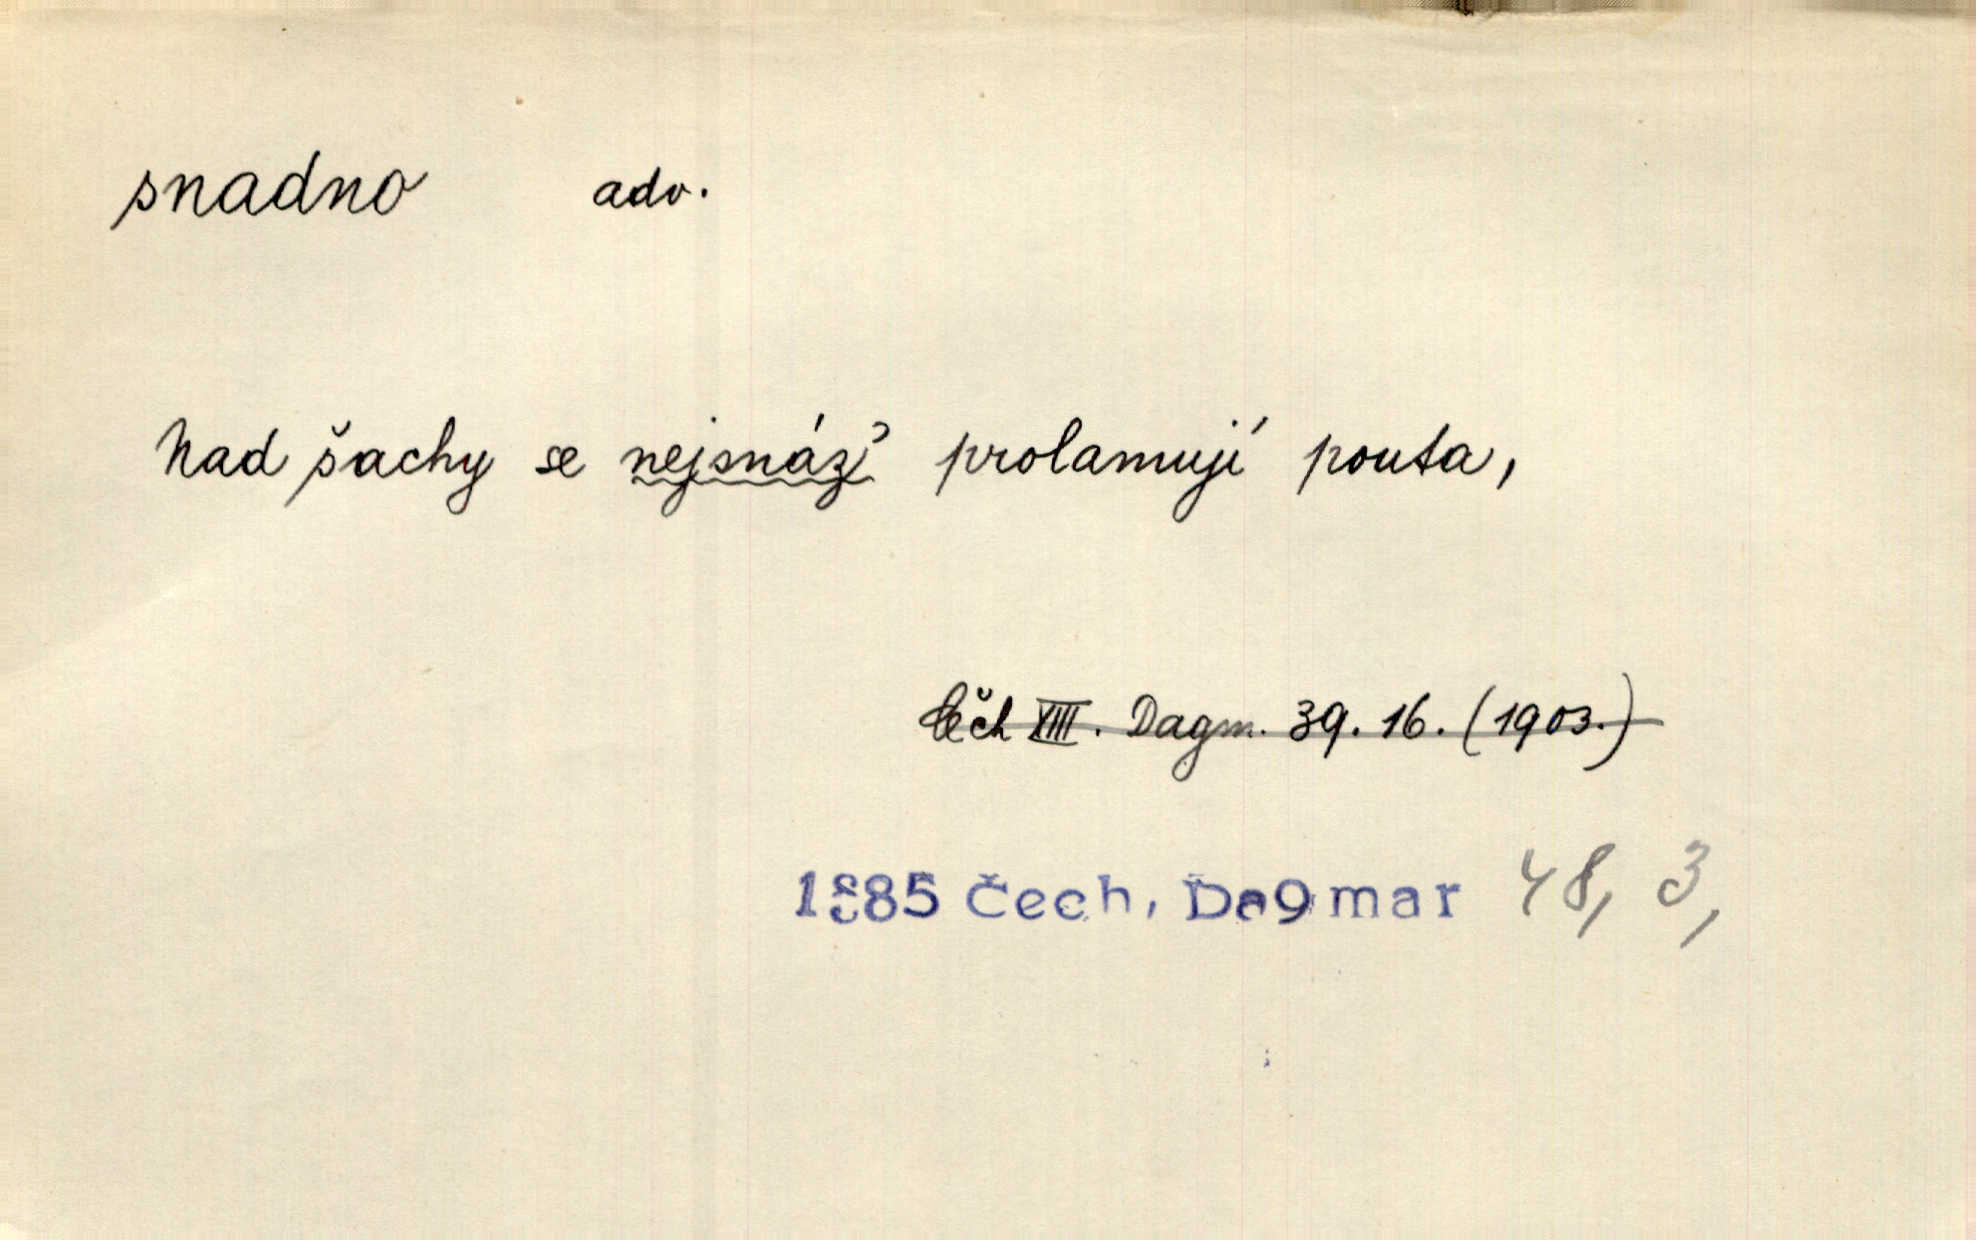 snadno adv.
Nad šachy se nejsnáz prolamují pouta,
Čech XIII. Dagm. 39. 16. (1903.)
1885 Čech, Dagmar 48, 3,